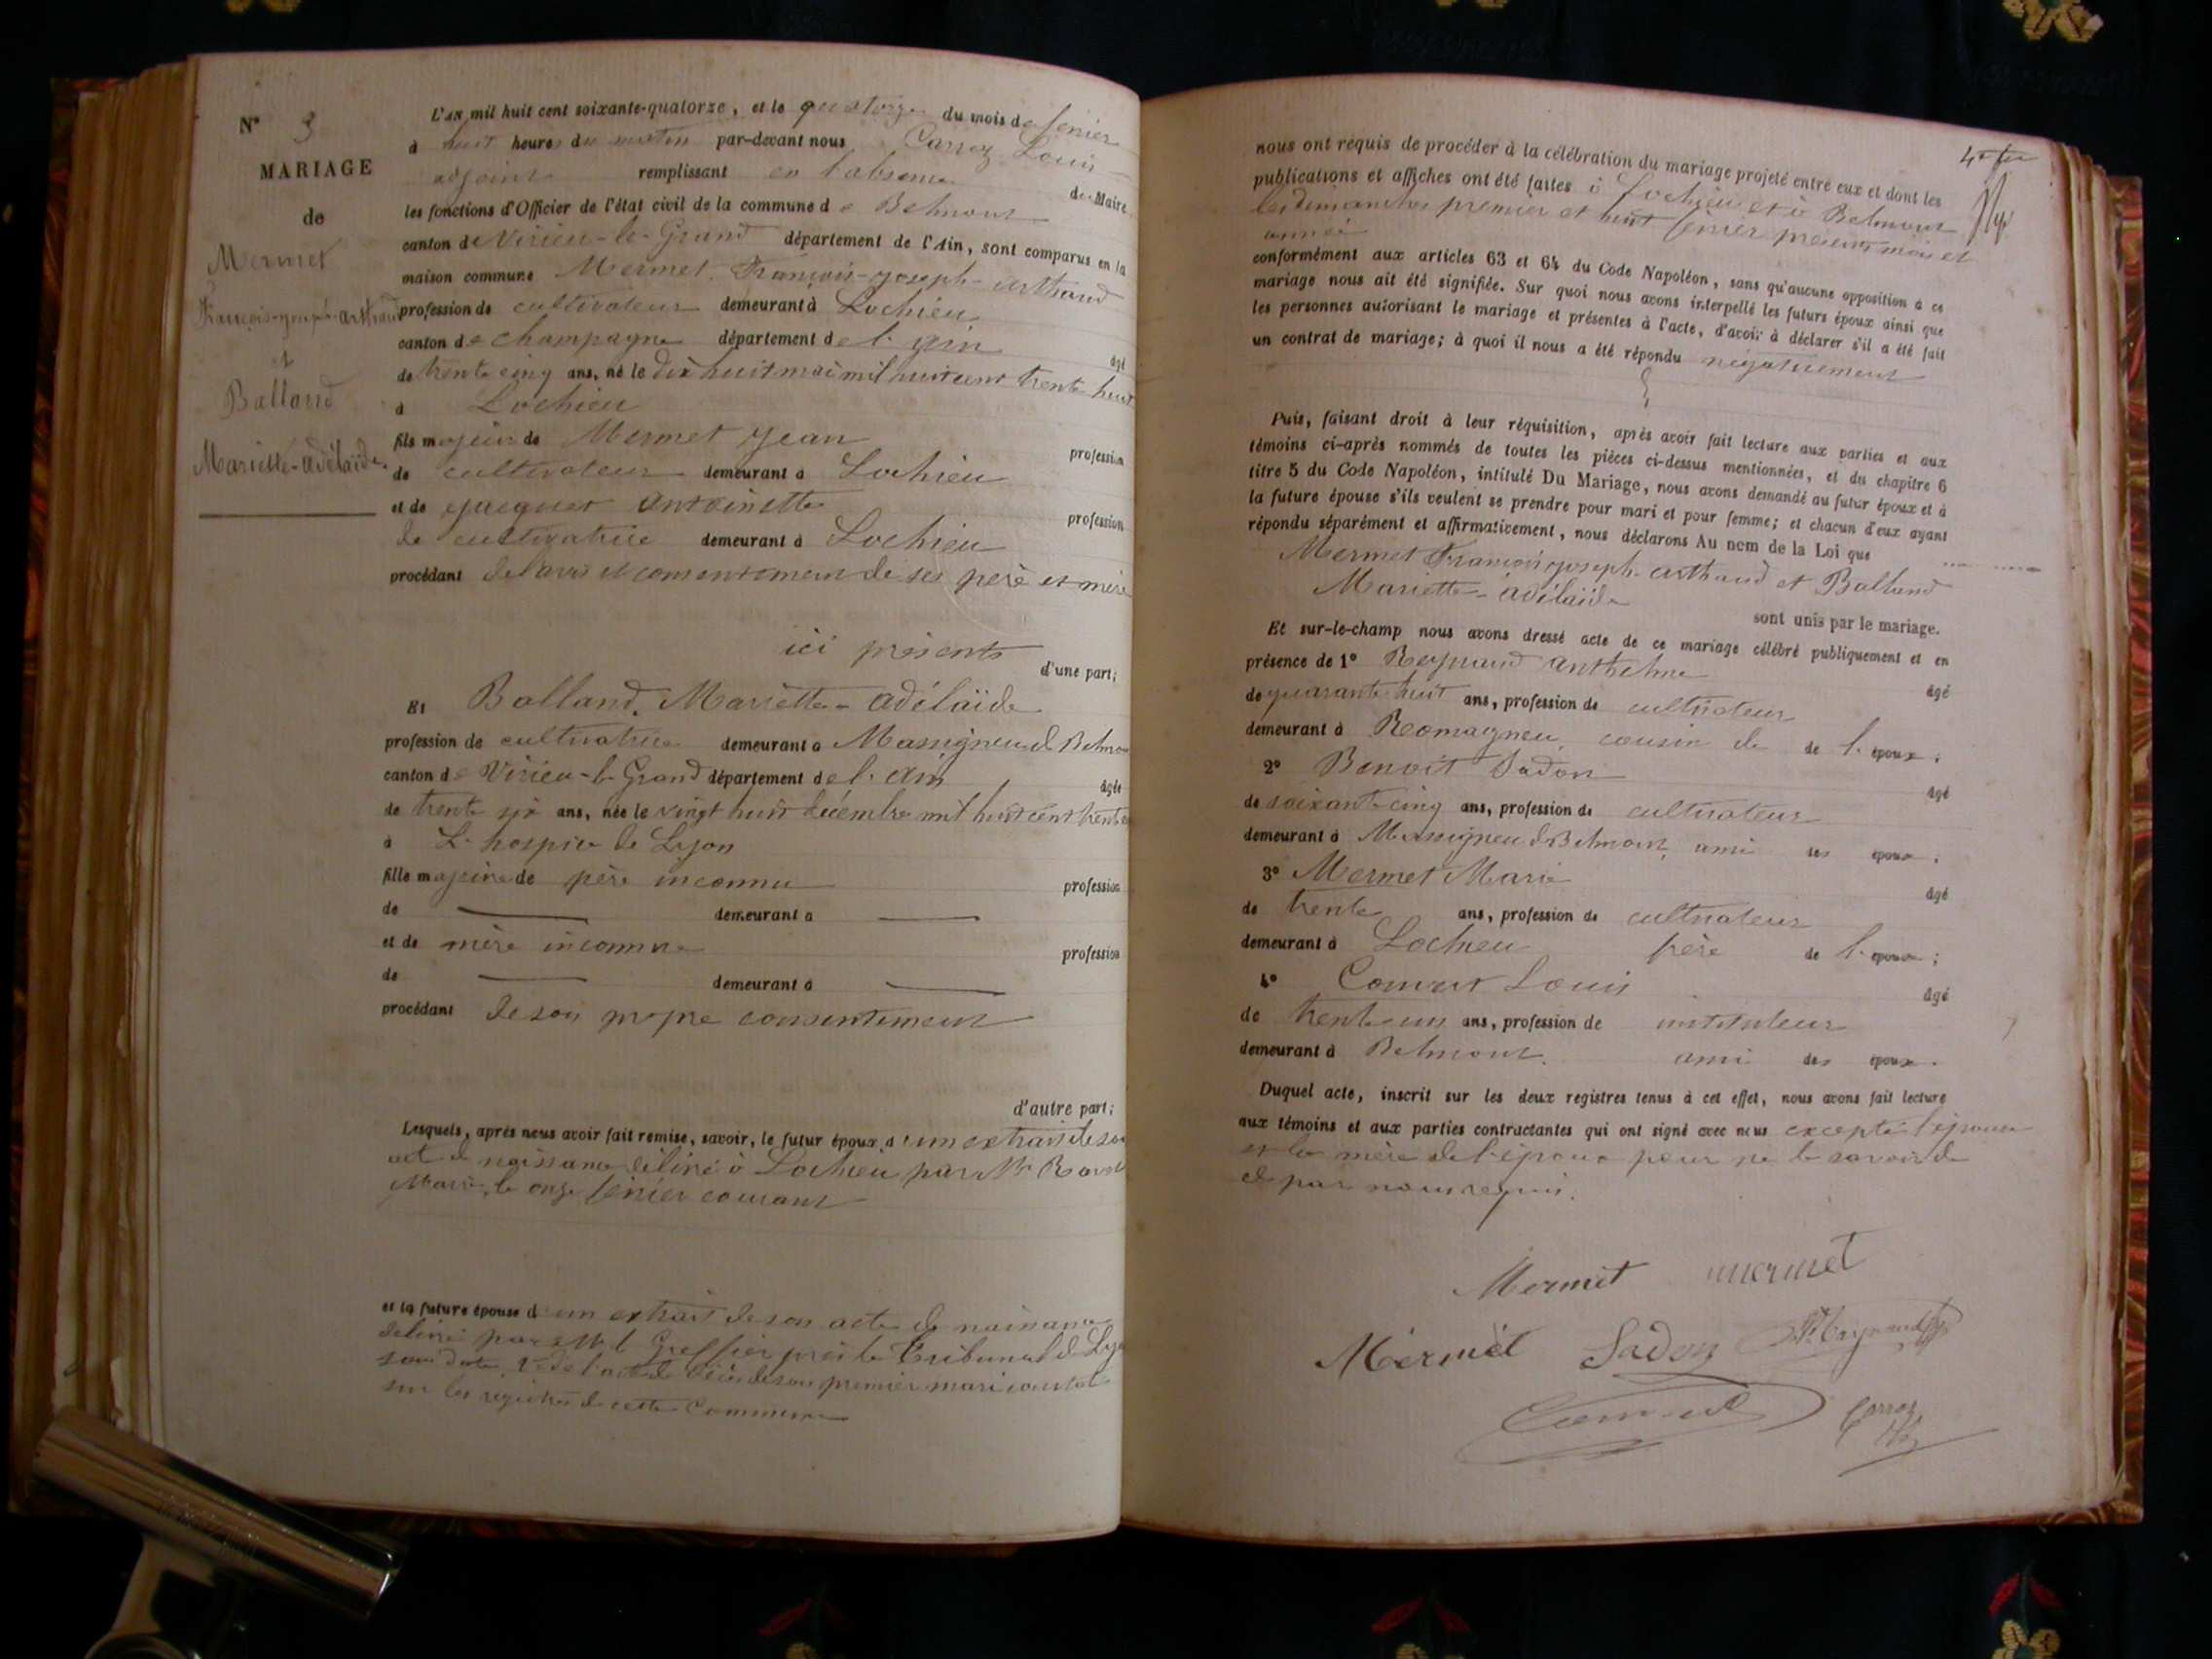 N° 3
MARIAGE
de
Mermet
François-joseph-arthaud
et
Balland
Mariette-adélaïde
L'AN mil huit cent soixante-quatorze, et le quatorze du mois de février
à huit heures du matin par-devant nous Carroz Louis
adjoint remplissant en l'absence du Maire
les fonctions d'Officier de l'état civil de la commune de Belmont
canton de Virieu-le-Grand département de l'Ain, sont comparus en la
maison commune Mermet François-joseph-arthaud
profession de cultivateur demeurant à Lochieu
canton de champagne département de l'ain âgé
de trente cinq ans, né le dix huit mai mil huit cent trente huit
à Lochieu
fils majeur de Mermet jean profession
de cultivateur demeurant à Lochieu
et de jacquet antoinette profession
de cultivatrice demeurant à Lochieu
procédant de l'avis et consentement de ses père et mère
ici présents
d'une part;
Et Balland Mariette-adélaïde
profession de cultivatrice demeurant à Massigneu de Belmont
canton de Virieu-le-Grand département de l'ain âgée
de trente six ans, née le vingt huit décembre mil huit cent trente
à L'hospice de Lyon
fille majeure de père inconnu profession
de demeurant à
et de mère inconnue profession
de demeurant à
procédant de son propre consentement
d'autre part;
Lesquels, après nous avoir fait remise, savoir, le futur époux d'un extrait de son
acte de naissance délivré à Lochieu par Mr
Maire, le onze février courant
et la future épouse d'un extrait de son acte de naissance
délivré par Mr le Greffier près le Tribunal de Lyon
sans date, 2° de l'acte de décès de son premier mari constaté
sur les registres de cette Commune
nous ont requis de procéder à la célébration du mariage projeté entre eux et dont les
publications et affiches ont été faites à Lochieu et à Belmont
les dimanches premier et huit février présent mois et
année
conformément aux articles 63 et 64 du Code Napoléon, sans qu'aucune opposition à ce
mariage nous ait été signifiée. Sur quoi nous avons interpellé les futurs époux ainsi que
les personnes autorisant le mariage et présentes à l'acte, d'avoir à déclarer s'il a été fait
un contrat de mariage; à quoi il nous a été répondu négativement
Puis, faisant droit à leur réquisition, après avoir fait lecture aux parties et aux
témoins ci-après nommés de toutes les pièces ci-dessus mentionnées, et du chapitre 6
titre 5 du Code Napoléon, intitulé Du Mariage, nous avons demandé au futur époux et à
la future épouse s'ils veulent se prendre pour mari et pour femme; et chacun d'eux ayant
répondu séparément et affirmativement, nous déclarons Au nom de la Loi que
Mermet François joseph-arthaud et Balland
Mariette-adélaïde
sont unis par le mariage.
Et sur-le-champ nous avons dressé acte de ce mariage célébré publiquement et en
présence de 1° Reynaud anthelme âgé
de quarante huit ans, profession de cultivateur
demeurant à Romagneu, cousin de de l'époux;
2° Benoit Sadon âgé
de soixante cinq ans, profession de cultivateur
demeurant à Massigneu de Belmont, ami des époux;
3° Mermet Marie âgé
de trente ans, profession de cultivateur
demeurant à Lochieu frère de l'époux;
4° Convert Louis âgé
de trente un ans, profession de instituteur
demeurant à Belmont. ami des époux.
Duquel acte, inscrit sur les deux registres tenus à cet effet, nous avons fait lecture
aux témoins et aux parties contractantes qui ont signé avec nous excepté l'épouse
et la mère de l'époux pour ne le savoir de
ce par nous requis.
Mermet mermet
Mermet Sadon Reynaud
Convert Carroz